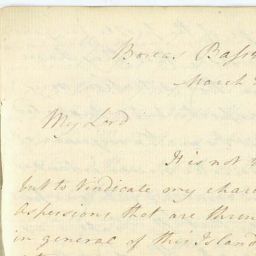 Boreas Bass
March
My Lord
It is not
but to vindicate my char
aspersions that are thro
in general of this Island